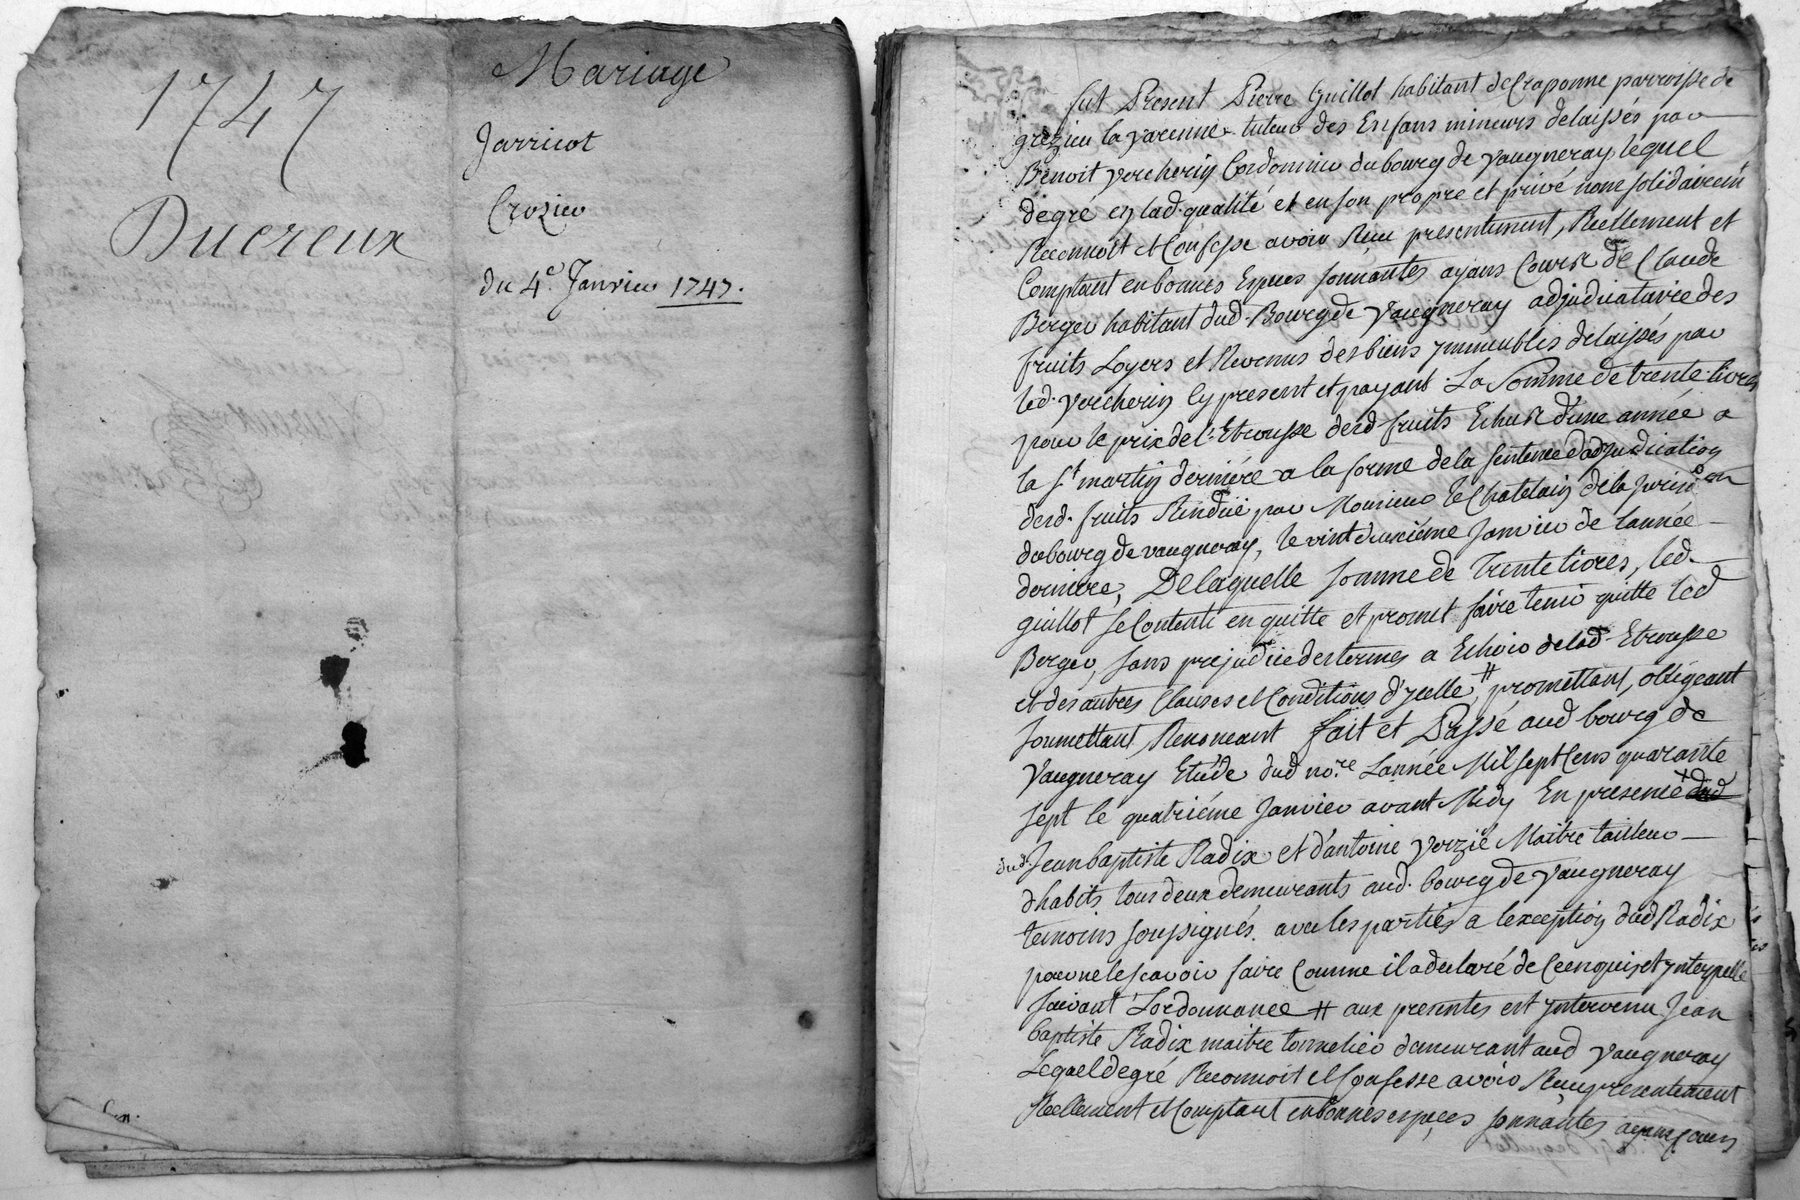 1747
Ducreux
Mariage
Jarricot
Crozier
du 4e. Janvier 1747.
fut Present Pierre Guillot habitant de Craponne parroisse de
grezieu la varenne tuteur des Enfans mineurs delaissés par
Benoit vercherin Cordonnier du bourg de vaugneray, lequel
de gré en lad. qualité et en son propre et privé nom solidairemt
Reconnoit et Confesse avoir Reçu presentement, Réellement et
Comptant en bonnes Espèces sonnantes ayans Cours de Claude
Berger habitant dud. Bourg de Vaugneray adjudicataire des
fruits Loyers et Revenus des biens ymmeubles delaissés par
led. vercherin Cy present et payant. La Somme de trente livres
pour le prix de l'Etrousse desd. fruits Echus d'une année a
la st martin derniere a la forme de la sentence d'adjudication
desd. fruits Rendüe par Monsieur le Chatelain de la jurisdon
du bourg de vaugneray, le vint deuxiéme Janvier de l'année
derniere, De laquelle somme de Trente livres, led.
guillot se Contente en quitte et promet faire tenir quitte led
Berger, sans prejudice des termes a Echoir de lad. Etrousse
et des autres Clauses et Conditions d'ycelle, # promettant, obligeant
soumettant, Renonceant fait et Passé aud bourg de
Vaugneray Etude dud no.re L'année Mil sept Cens quarante
sept le quatriéme Janvier avant Midy En presence dud
dud. Jean baptiste Radix et d'antoine verzié Maitre tailleur
d'habits tous deux demeurants aud. bourg de Vaugneray
temoins soussignés. avec les parties a l'exception dud Radix
pour ne le scavoir faire Comme il a declaré de Ce enquis et ynterpellé
suivant L'ordonnance # aux presentes est yntervenu Jean
baptiste Radix maitre tonnelier demeurant aud vaugneray
Lequel de gré Reconnoit et Confesse avoir Reçu presentement
Réellement et Comptant en bonnes espèces sonnantes ayans Cours